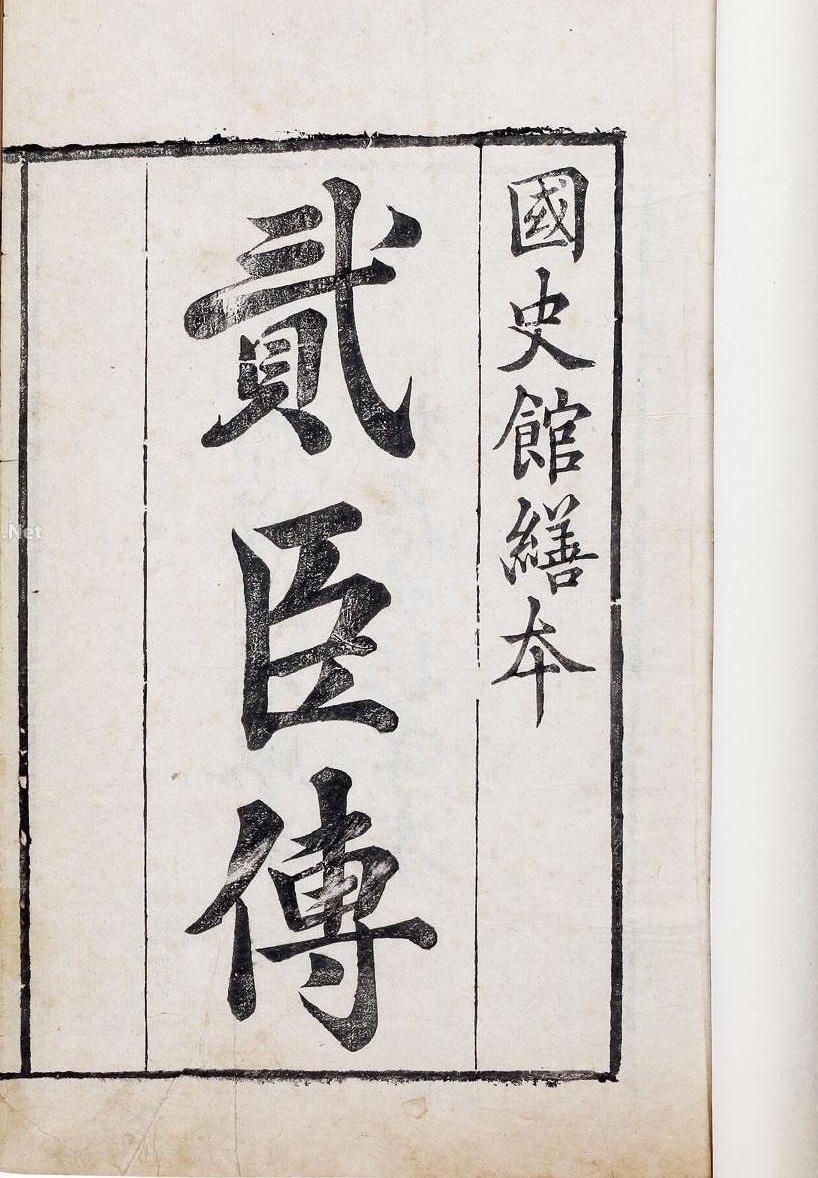 國史館繕本
貳臣傳
.Net